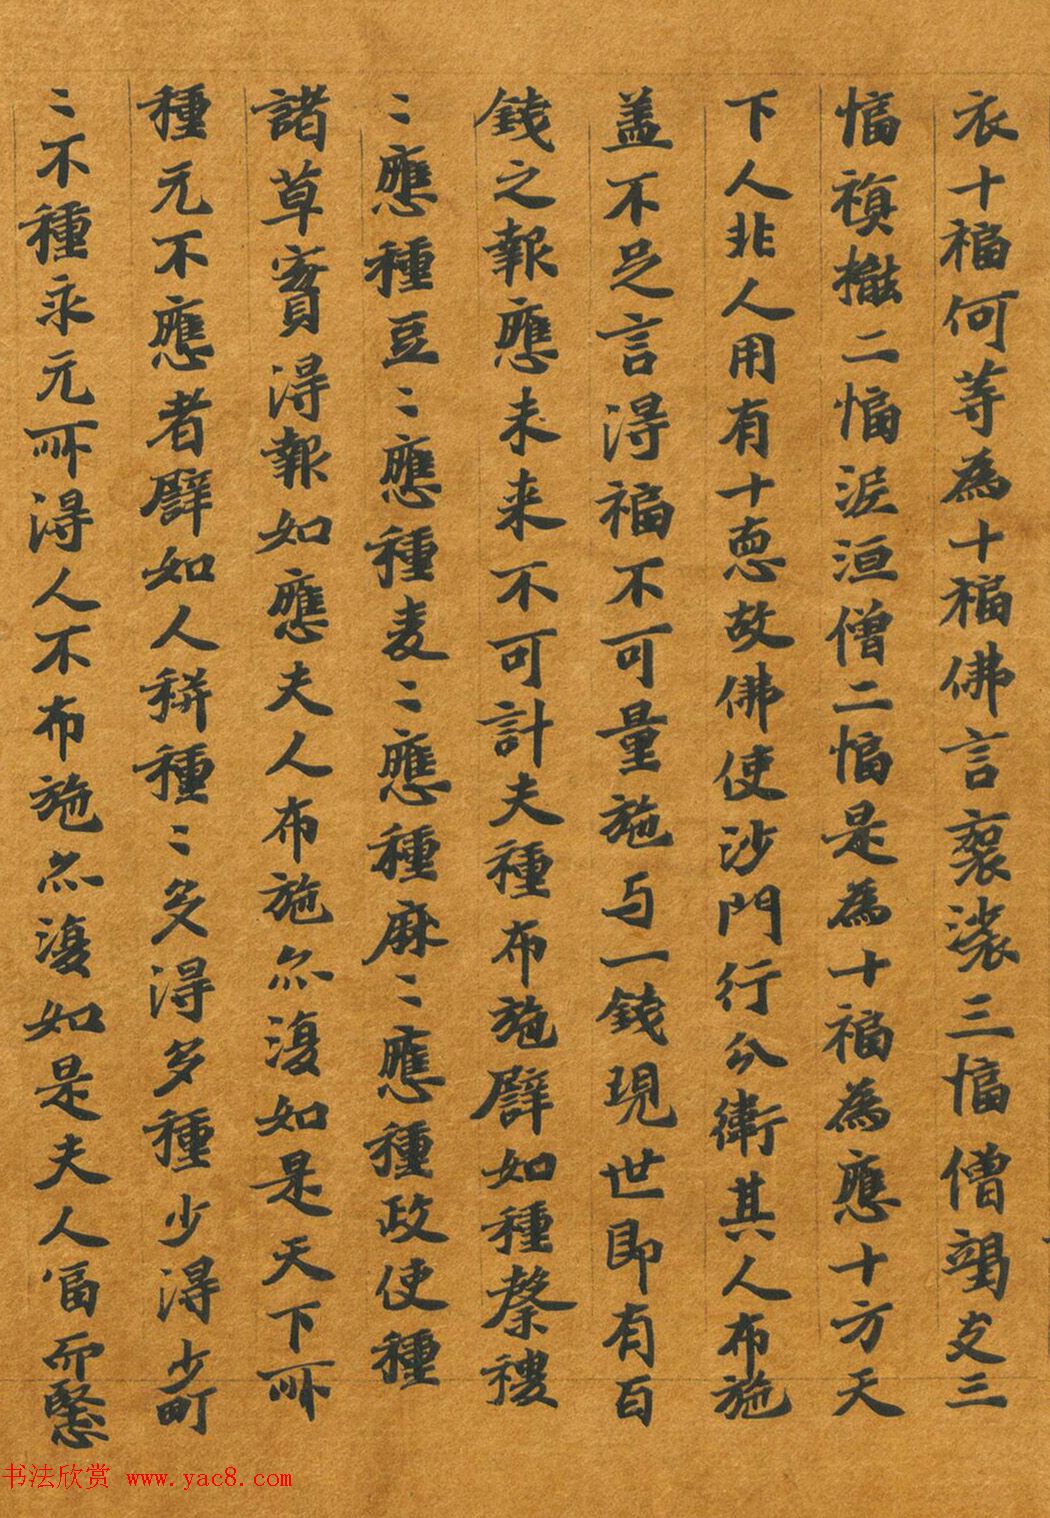 衣十福何等為十福佛言袈裟三愊僧竭支三
愊二愊泥洹僧二愊是為十福為應十方天
下人非人用有十悳故佛使沙門行分衛其人布施
盖不足言得福不可量施与一錢現世即有百
錢之報應未来不可計夫種布施譬如種
〻應種豆〻應種麦〻應種麻〻應種政使種
諸草實得報如應夫人布施亦復如是天下所
種无不應者譬如人耕種〻多得多種少得少町
〻不種永无所得人不布施亦復如是夫人富而慳
书法欣赏 www.yac8.com